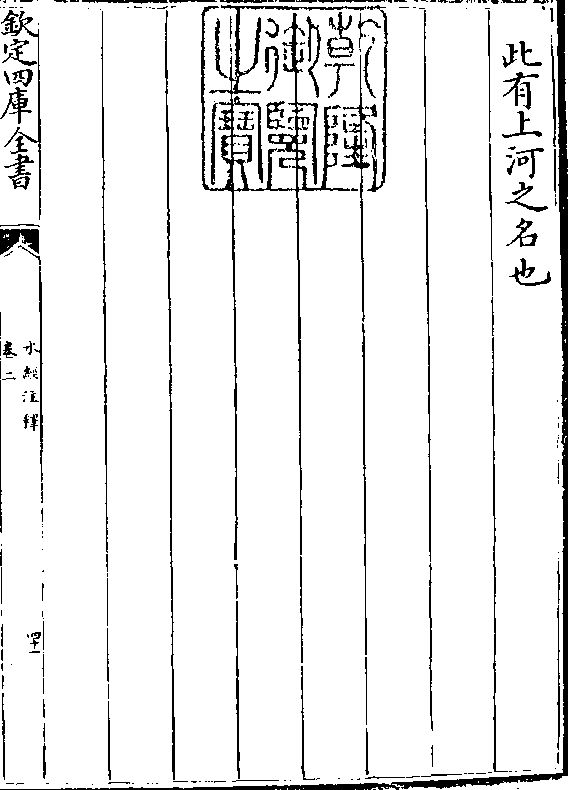 此有上河之名也
乾隆
御覽
之寶
欽定四庫全書
水經注釋
卷二
四十一